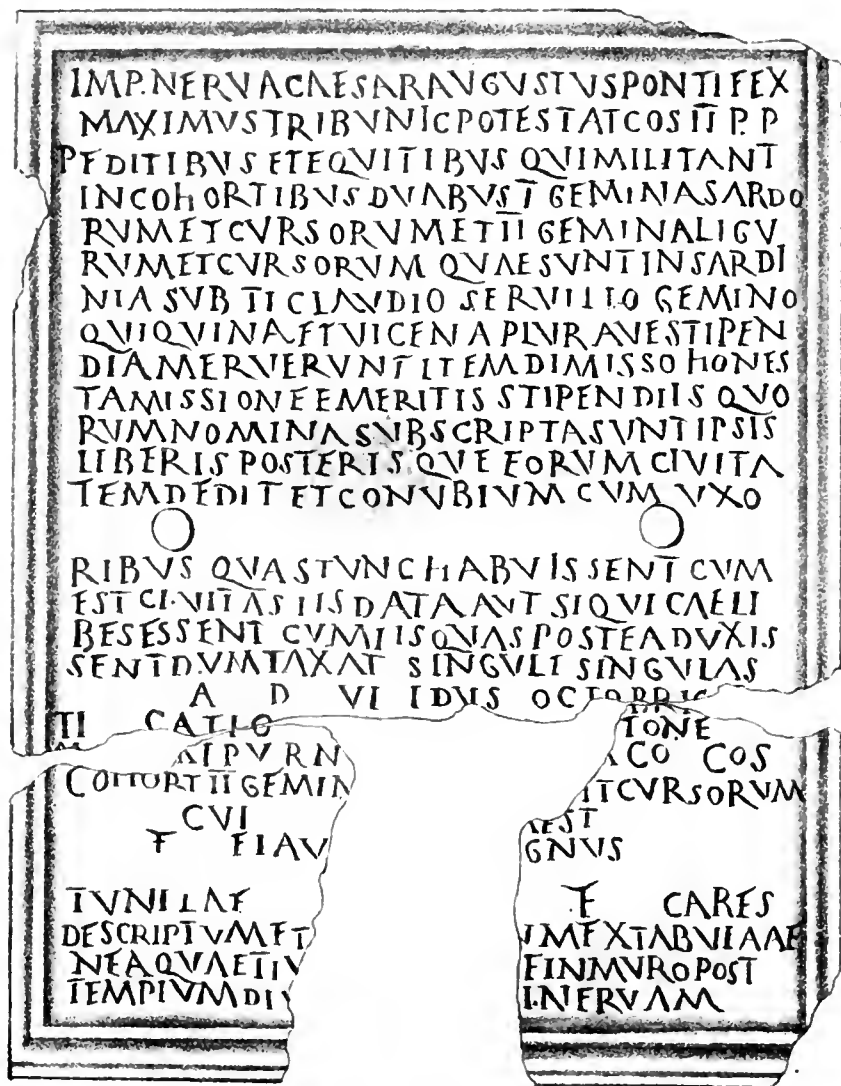 IMP.NERVACAESARAVGVSTVSPONTIFEX
MAXIMVSTRIBVNICPOTESTATCOSIIP.P
PEDITIBVSETEQVITIBVSQVIMILITANT
INCOHORTIBVSDVABVSIGEMINASARDO
RVMETCVRSORVMETIIGEMINALIGV
RVMETCVRSORVMQVAESVNTINSARDI
NIASVBTICLAVDIOSERVILIOGEMINO
QVIQVINAETVICENAPLVRAVESTIPEN
DIAMERVERVNTITEMDIMISSOHONES
TAMISSIONEEMERITISSTIPENDIISQVO
RVMNOMINASVBSCRIPTASVNTIPSIS
LIBERISPOSTERISQVEEORVMCIVITA
TEMDEDITETCONVBIVMCVMVXO
RIBVSQVASTVNCHABVISSENTCVM
ESTCI.VITASIISDATAAVTSIQVICAELI
BESESSENTCVMIISQVASPOSTEADVXIS
SENTDVMTAXATSINGVLISINGVLAS
A D VI IDVS OCTOBRIS
TI CATIO TONE
IPVRN CO COS
COHORTIIGEMIN ITCVRSORVM
CVI EST
T FLAV GNVS
TVNILAE F CARES
DESCRIPTVMET MEXTABVLAAE
NEAQVAETI FINMVROPOST
TEMPLVMDIV NERVAM